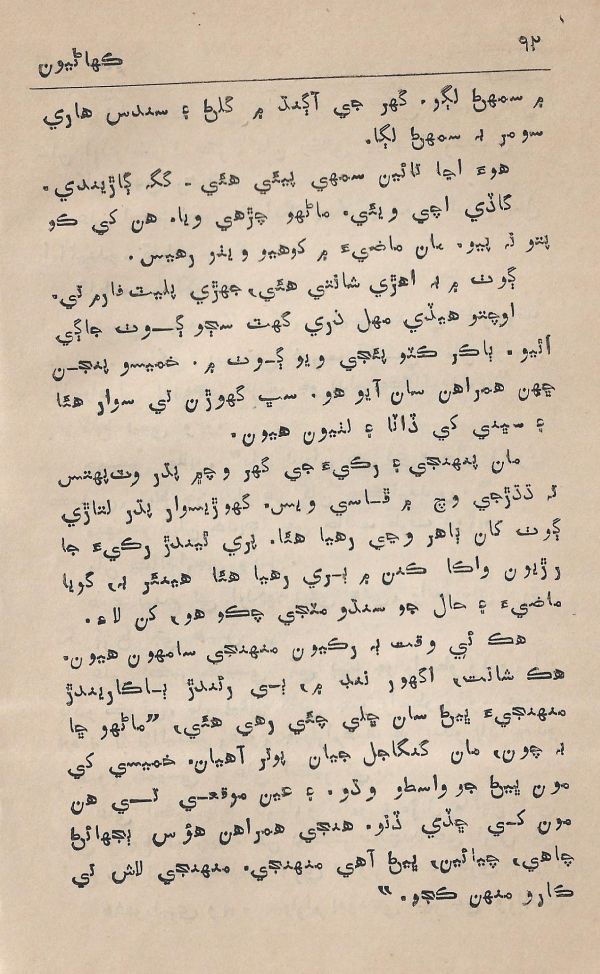 ۹۲
ڪهاڻيون
۾ سمهڻ لڳو. گهر جي آڳنڌ ۾ گلڻ ۽ سندس هاري
سومر بہ سمهڻ لڳا.
هوءَ اڃا تائين سمهي پيئي هئي ـ گگہ ڳاڙيندي.
گاڏي اچي ويئي. ماڻهو چڙهي ويا. هن کي ڪو
پتو نہ پيو. مان ماضيءَ ۾ کوهيو ويٺو رهيس.
ڳوٺ ۾ بہ اهڙي شانتي هئي، جهڙي پليٽ فارم تي.
اوچتو هيڏي مهل ذري گهٽ سڄو ڳـوٺ جاڳي
اُٿيو. ٻاڪر ڪٽو پئجي ويو ڳـوٺ ۾. خميسو پنجـن
ڇهن همراهن سان آيو هو. سڀ گهوڙن تي سوار هئا
۽ سڀني کي ڏاٽا ۽ لٺيون هيون.
مان پنهنجي ۽ رکيءَ جي گهر وچ ۾ پڌر وٽ پهتس
تہ ڌڌڙجي وچ ۾ ڦـاسي ويس. گهوڙيسوار پڌر لتاڙي
ڳوٺ کان ٻاهر وڃي رهيا هئا. پري ٿيندڙ رکيءَ جا
رڙيون واڪا ڪنن ۾ ٻـري رهيا هئا هينئر بہ، گويا
ماضيءَ ۽ حال جو سنڌو مٽجي چڪو هو، کن لاءِ.
هڪ ئي وقت ٻہ رکيون منهنجي سامهون هيون.
هڪ شانت، اگهور ننڊ ۾، ٻـي رئندڙ ٻـاڪاريندڙ
منهنجيءَ ڀيڻ سان ڇلي چئي رهي هئي، ”ماڻهو ڇا
بہ چون، مان گنگاجل جيان پوتر آهيان. خميسي کي
مون ڀيڻ جو واسطو وڌو. ۽ عين موقعـي تـي هن
مون کـي ڇڏي ڏنو. هنجي همراهن هوُس ٻجهائڻ
چاهي، چيائين، ڀيڻ آهي منهنجي. منهنجي لاش تي
ڪارو منهن ڪجو.“